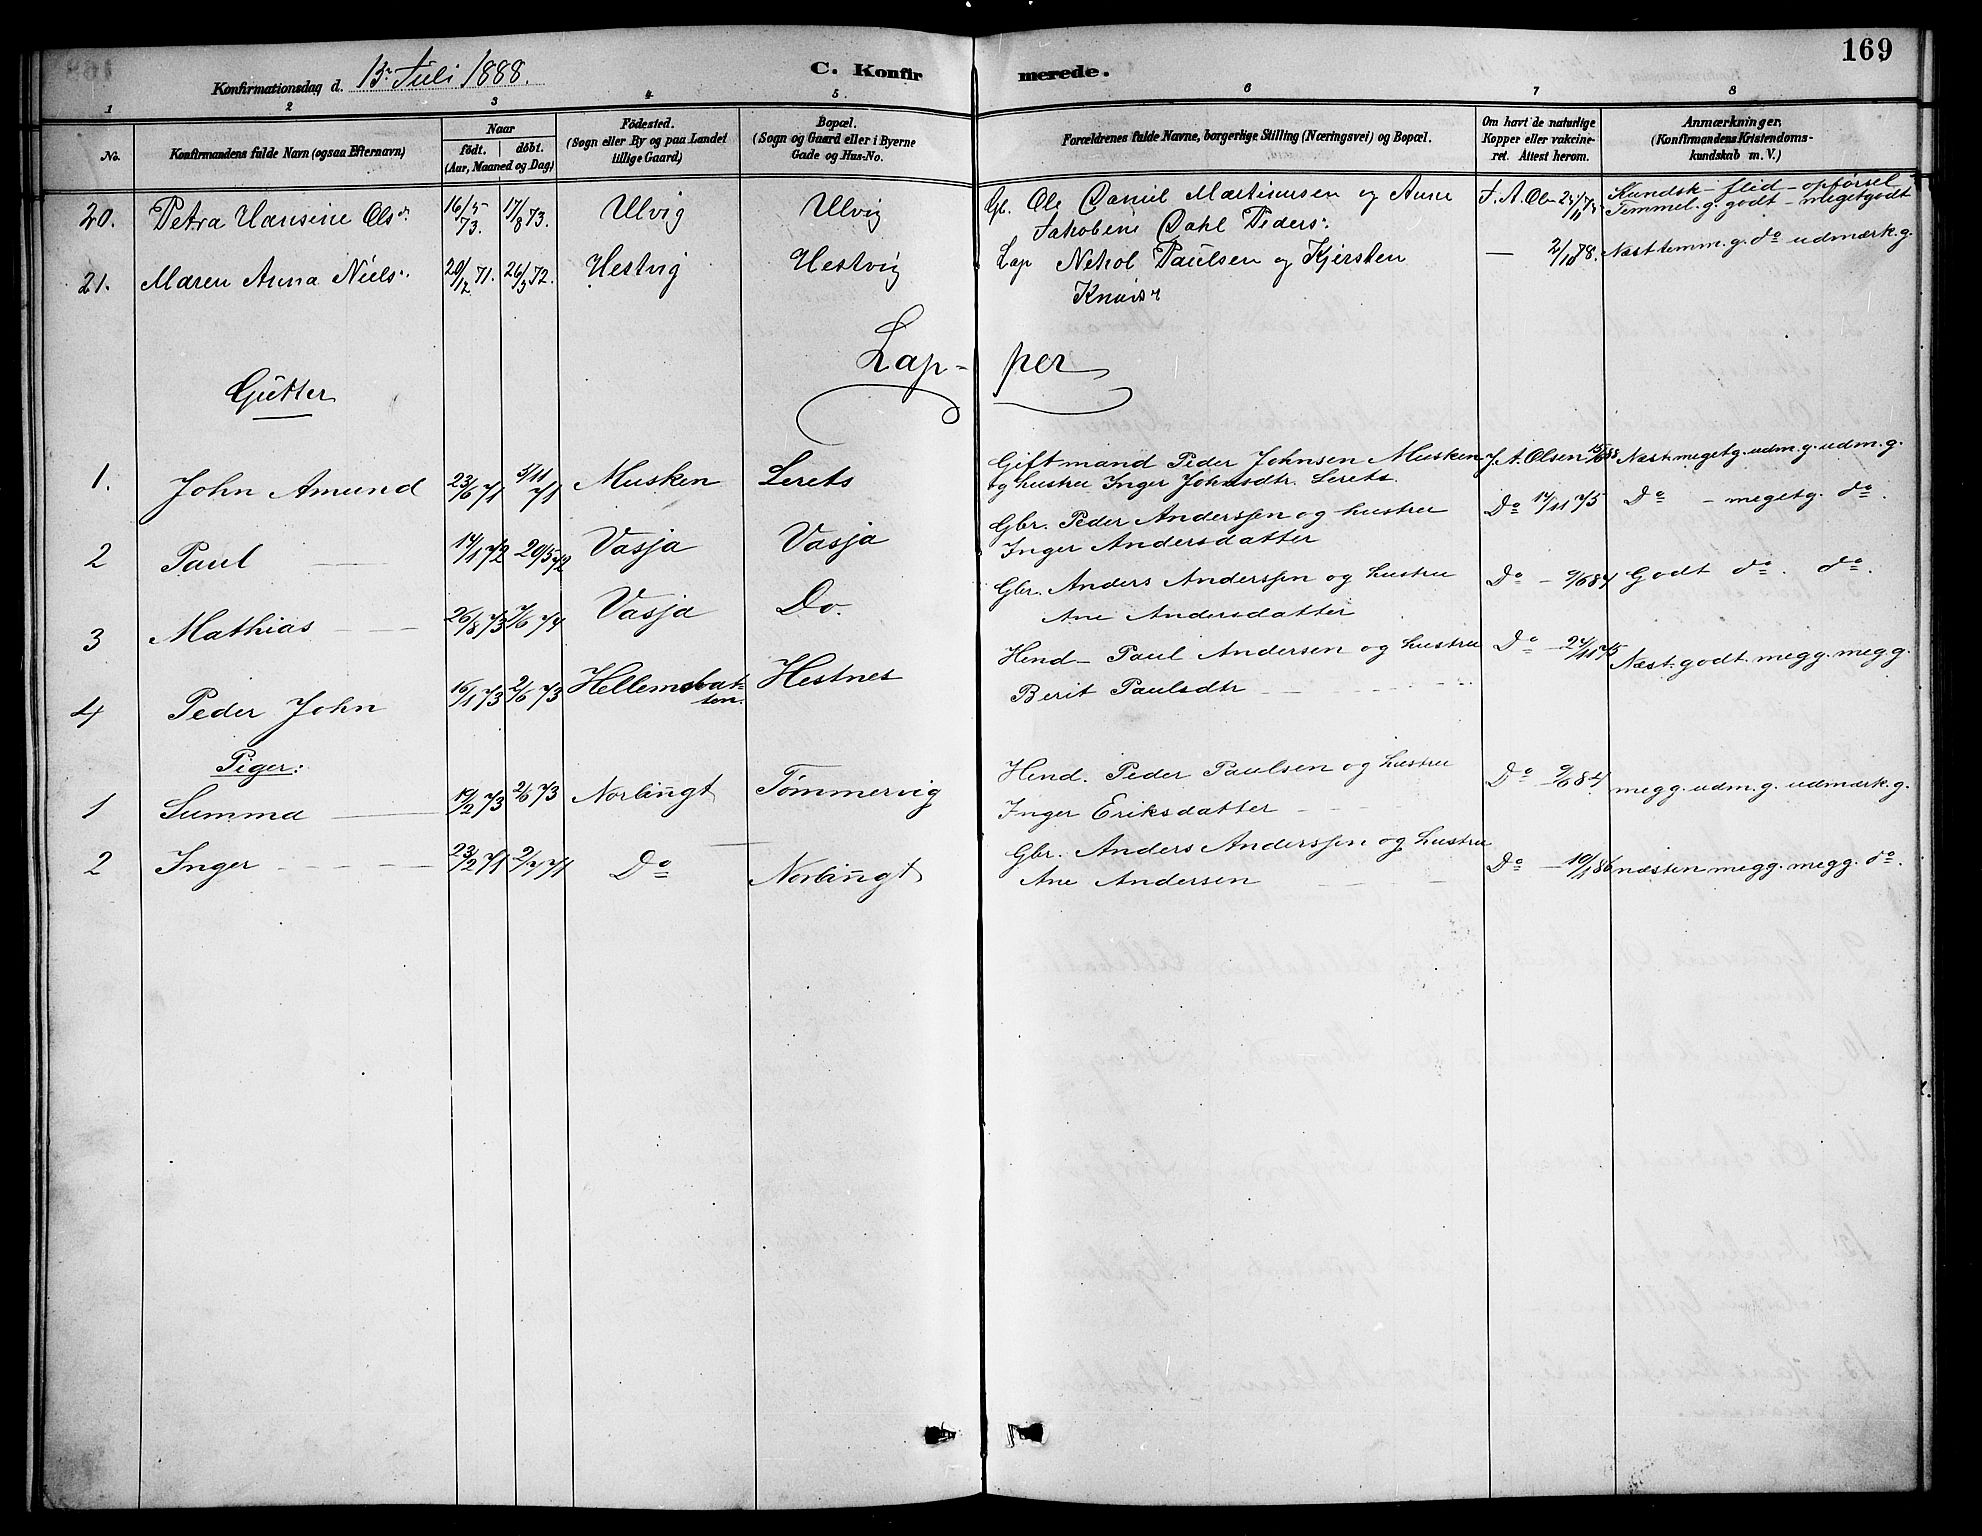 169
Konfirmationsdag d. 13. Juli 1888.
C. Konfirmerede.
1 2 3 4 5. 6 7 8
No.
Konfirmandens fulde Navn (ogsaa Efternavn)
Naar
födt. döbt.
(Aar, Maaned og Dag)
Födested.
(Sogn eller By og paa Landet
tillige Gaard)
Bopæl.
(Sogn og Gaard eller i Byerne
Gade og Hus-No.
Forældrenes fulde Navne, borgerlige Stilling (Næringsvei) og Bopæl.
Om havt de naturlige
Kopper eller vakcine-
ret. Attest herom.
Anmærkninger.
(Konfirmandens Kristendoms-
kundskab m. V.)
20. Petra Hansine Olsdr 16/5 73. 17/8 73. Ulvig Ulvig Gb. Ole Daniel Martinusen og Anne
Jakobine Dahl Peders:
J. A. Ols
Kundsk- flid- opförsel
Temmel. g. godt - megetgodt
21. Maren Anna Niels 20/12 71. 26/3 72. Hestvig Hestvig Lap Nekol Paulsen og Kjersten
Knuts
— 2/1 88. Næst temm. g. do udmærk. g.
Lapper
Gutter
1. John Amund 23/6 71 5/11 71 Musken Lerets Giftmand Peder Johnsen Musken
og hustru Inger Johnsdtr. Lerets.
J. A. Olsen 88 Næst. megetg. udm. g. udm. g.
2 Paul — 14/1 72 20/5 72 Vasja Vasja Gbr. Peder Anderssen og hustru
Inger Andersdatter
Do 14/11 75 Do - megetg. do.
3 Mathias — 26/8 73 7/6 74 Vasja Do. Gbr. Anders Anderssen og hustru
Ane Andersdatter
Do - 9/6 84 Godt do. do.
4 Peder John 16/1 73 2/6 73 Hellemsbat-
ten. Hestnes Hend- Paul Andersen og hustru
Berit Paulsdtr
Do - 24/11 75 Næst. godt. megg. megg.
Piger:
1 Summa — 19/2 73 2/6 73 Norbugt Tömmervig Hend. Peder Paulsen og hustru
Inger Eriksdatter
Do - 9/6 84 megg. udm. g. udmærk. g.
2 Inger — 23/2 71 2/7 71 Do Norbugt Gbr. Anders Anderssen og hustru
Ane Andersen
Do - 10/1 86 næsten megg. megg. do.